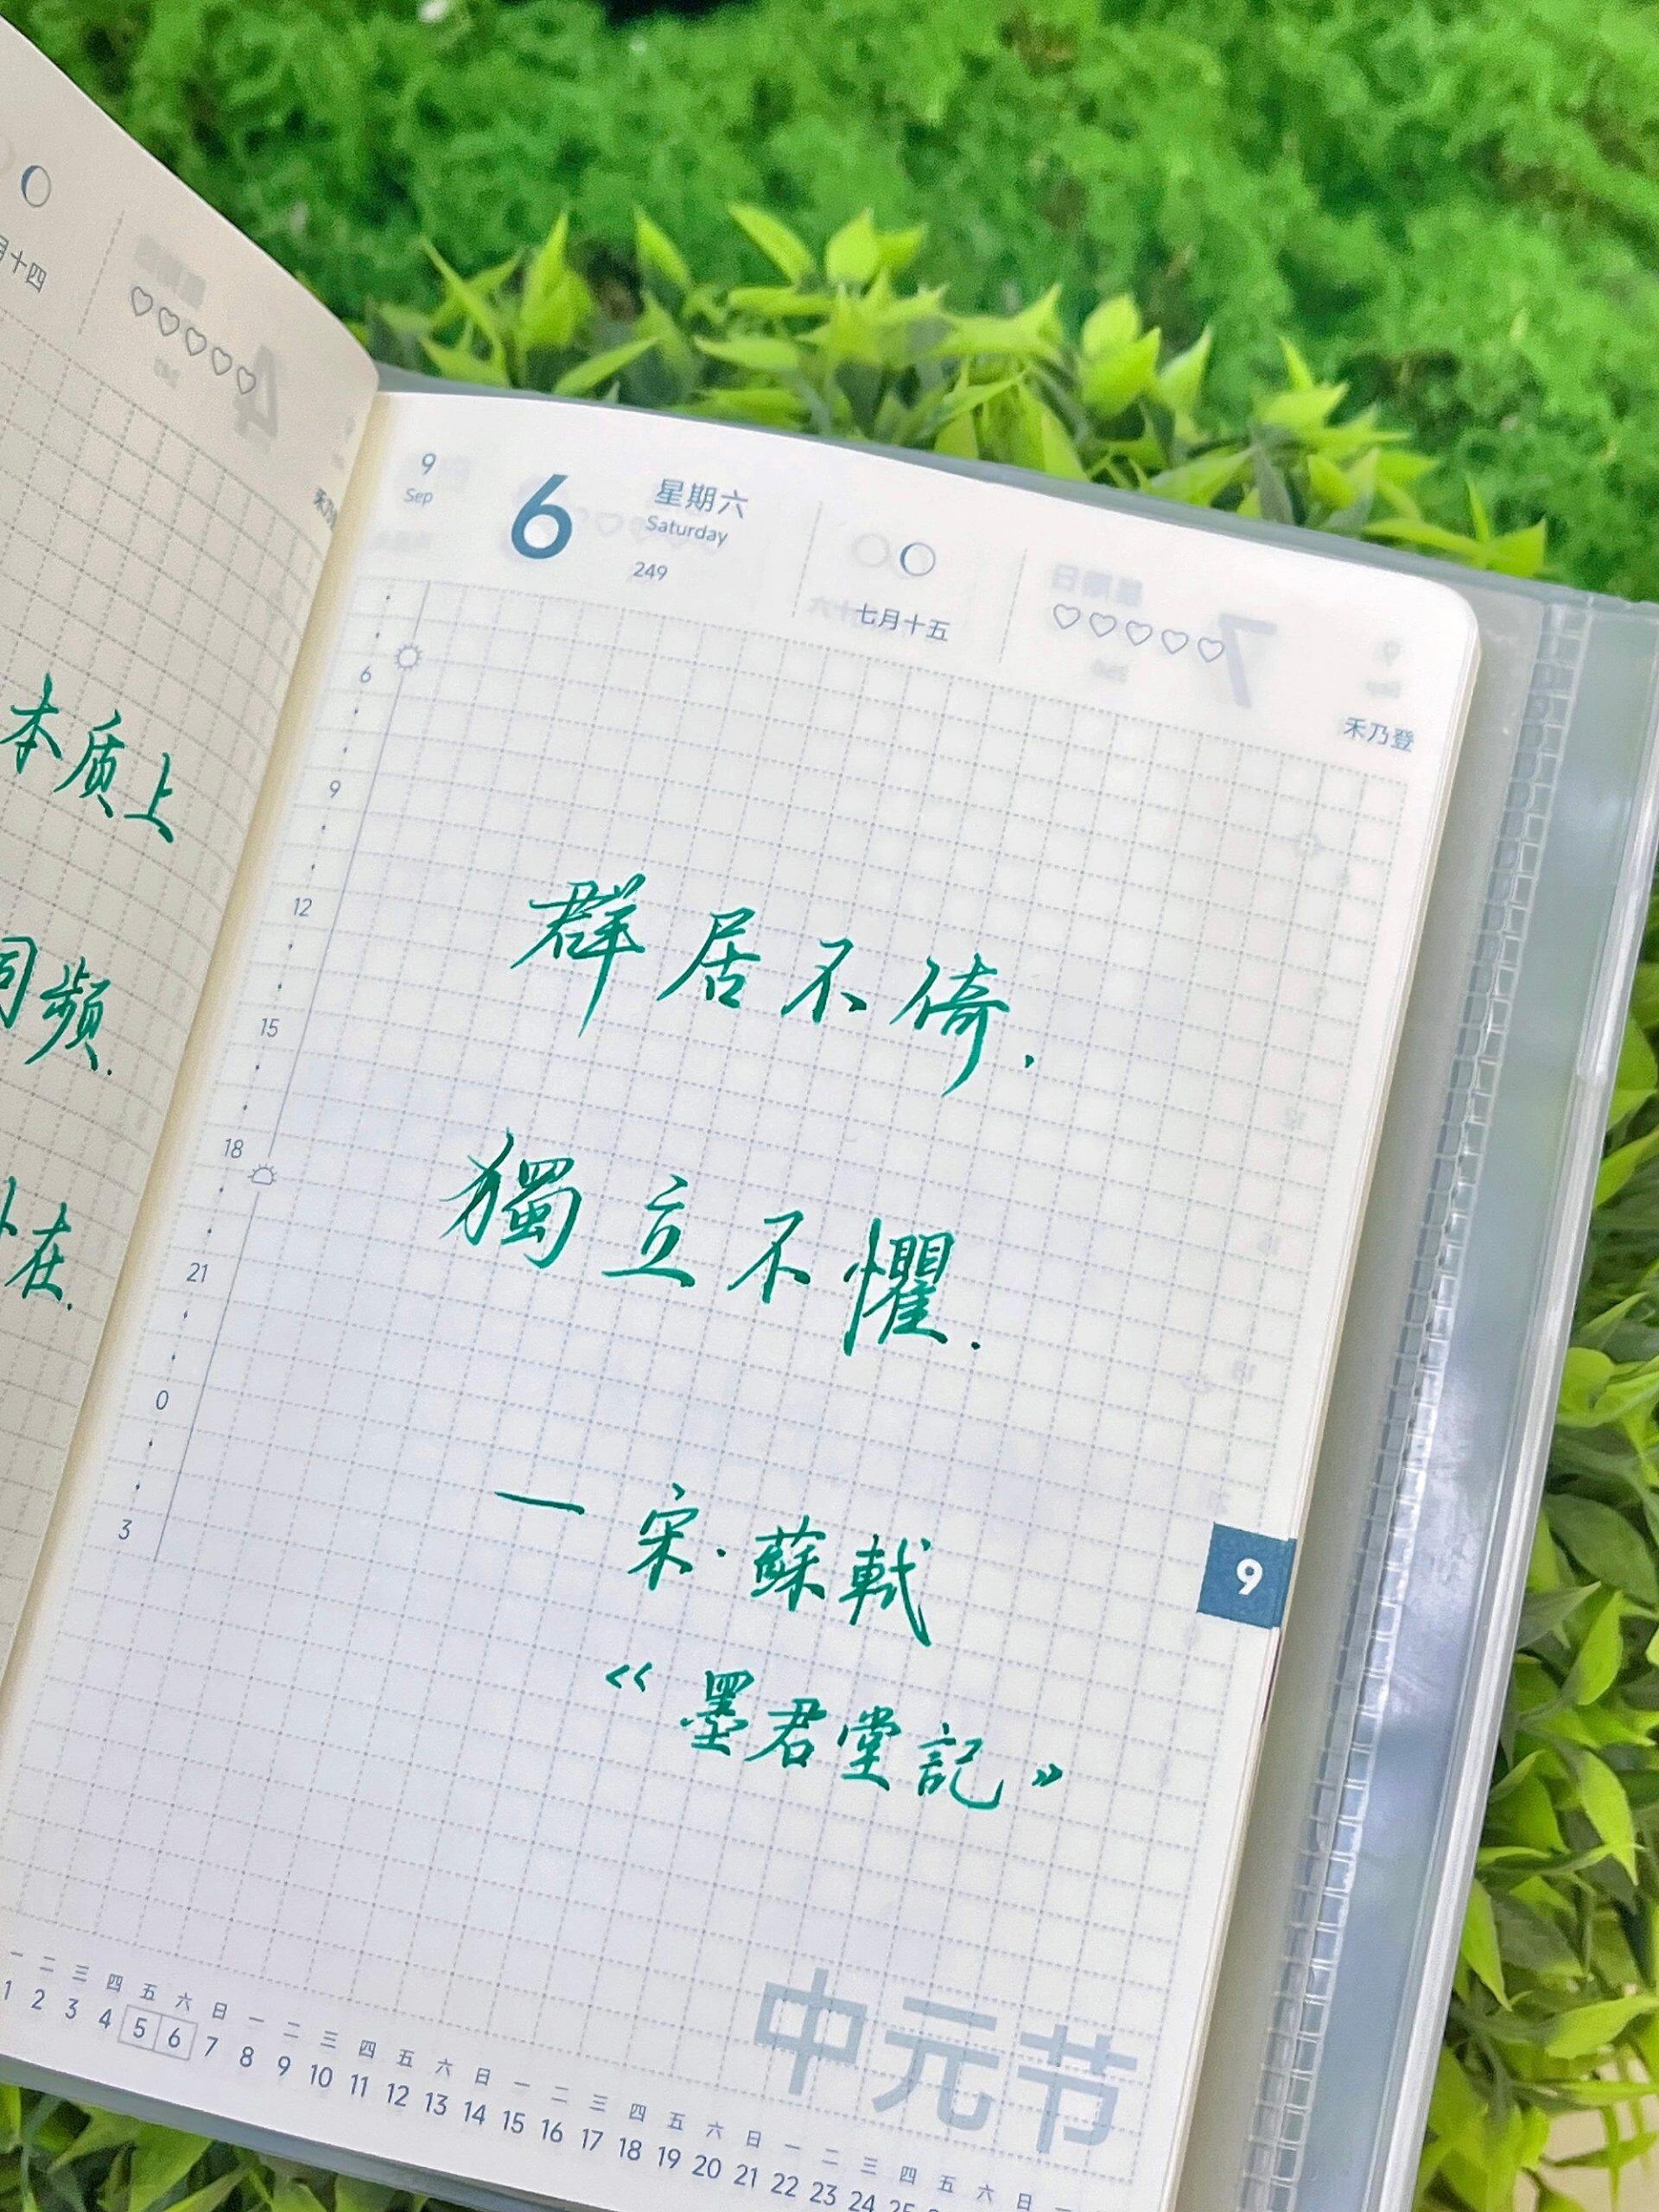 月十四
本质上
同频.
在.
9
Sep
6
星期六
Saturday
249
七月十五
禾乃登
6
9
12
15
18
21
0
3
群居不倚.
獨立不懼.
一宋·蘇軾
《墨君堂記》
9
中元节
一 二 三 四 五 六 日 一 二 三 四 五 六 日 一 二 三 四 五 六 日 一 二 三 四 五 六 日 一
1 2 3 4 5 6 7 8 9 10 11 12 13 14 15 16 17 18 19 20 21 22 23 24 25